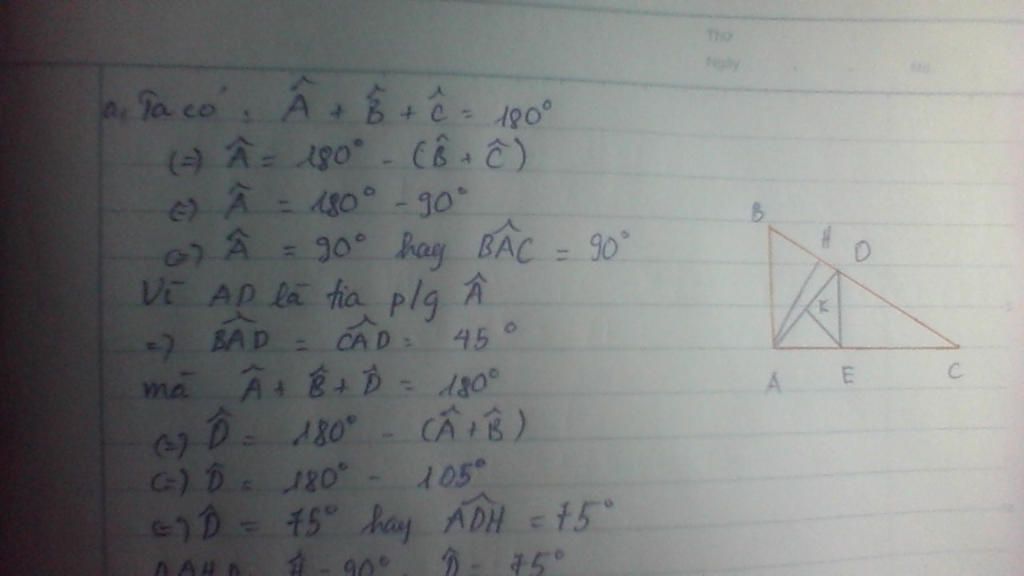 Thứ
Ngày
a, Ta có : Â + B̂ + Ĉ = 180°
(=) Â = 180° - (B̂ + Ĉ)
(=) Â = 180° - 90°
=) Â = 90° hay BAC = 90°
Vì AD là tia p/g Â
=) BAD = CAD = 45°
mà Â + B̂ + D̂ = 180°
(=) D̂ = 180° - (Â + B̂)
(=) D̂ = 180° - 105°
(=) D̂ = 75° hay ADH = 75°
ΔAHD Ĥ = 90° D̂ = 75°
B
H
D
K
A
E
C